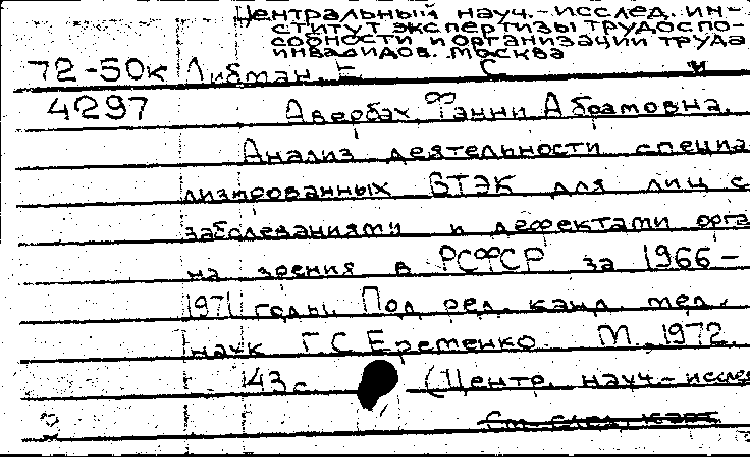 Центральный науч.-исслед. ин-
ститут экспертизы трудоспо-
собности и организации труда
инвалидов. Москва
72-50к Либман, Е С и
4297 Авербах, Фанни Абрамовна.
Анализ деятельности специа-
лизированных ВТЭК для лиц с
заболеваниями и дефектами орга
на зрения в РСФСР за 1966-
1971 годы. Под ред. канд. мед.
наук Г.С Еременко. М. 1972.
143 с. (Центр. науч.-исслед
См. след. карт